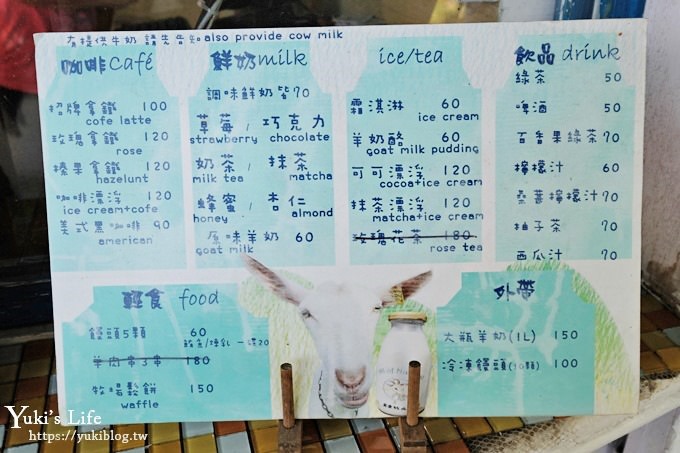 有提供牛奶 請先告知 also provide cow milk
咖啡 café
招牌拿鐵 100
cofe latte
玫瑰拿鐵 120
rose
榛果拿鐵 120
hazelunt
咖啡漂浮 120
ice cream+cofe
美式黑咖啡 90
american
鮮奶 milk
調味鮮奶皆70
草莓 / 巧克力
strawberry chocolate
奶茶 / 抹茶
milk tea matcha
蜂蜜 / 杏仁
honey almond
原味羊奶 60
goat milk
ice/tea
霜淇淋 60
ice cream
羊奶酪 60
goat milk pudding
可可漂浮 120
cocoa+ice cream
抹茶漂浮 120
matcha+ice cream
玫瑰花茶 180
rose tea
飲品 drink
綠茶 50
啤酒 50
百香果綠茶 70
檸檬汁 60
桑葚檸檬汁 70
柚子茶 70
西瓜汁 70
輕食 food
饅頭5顆 60
羊肉串3串 180
牧場鬆餅 150
waffle
外帶
大瓶羊奶(1L) 150
冷凍饅頭(10顆) 100
Yuki's Life
https://yukiblog.tw